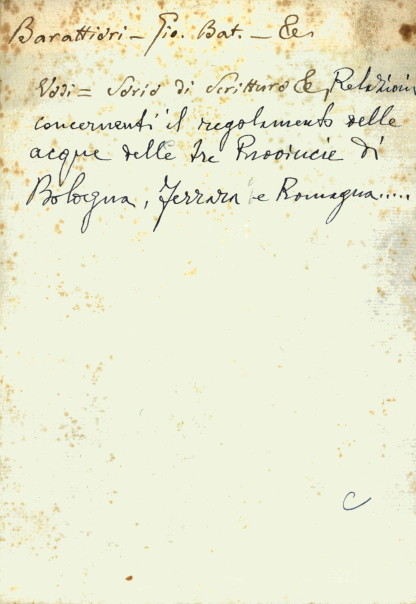 Barattieri - Gio. Bat. - &c.
Vedi = Serie di Scritture &c, Relazioni
concernenti il regolamento delle
acque delle tre Provincie di
Bologna, Ferrara e Romagna.....
C